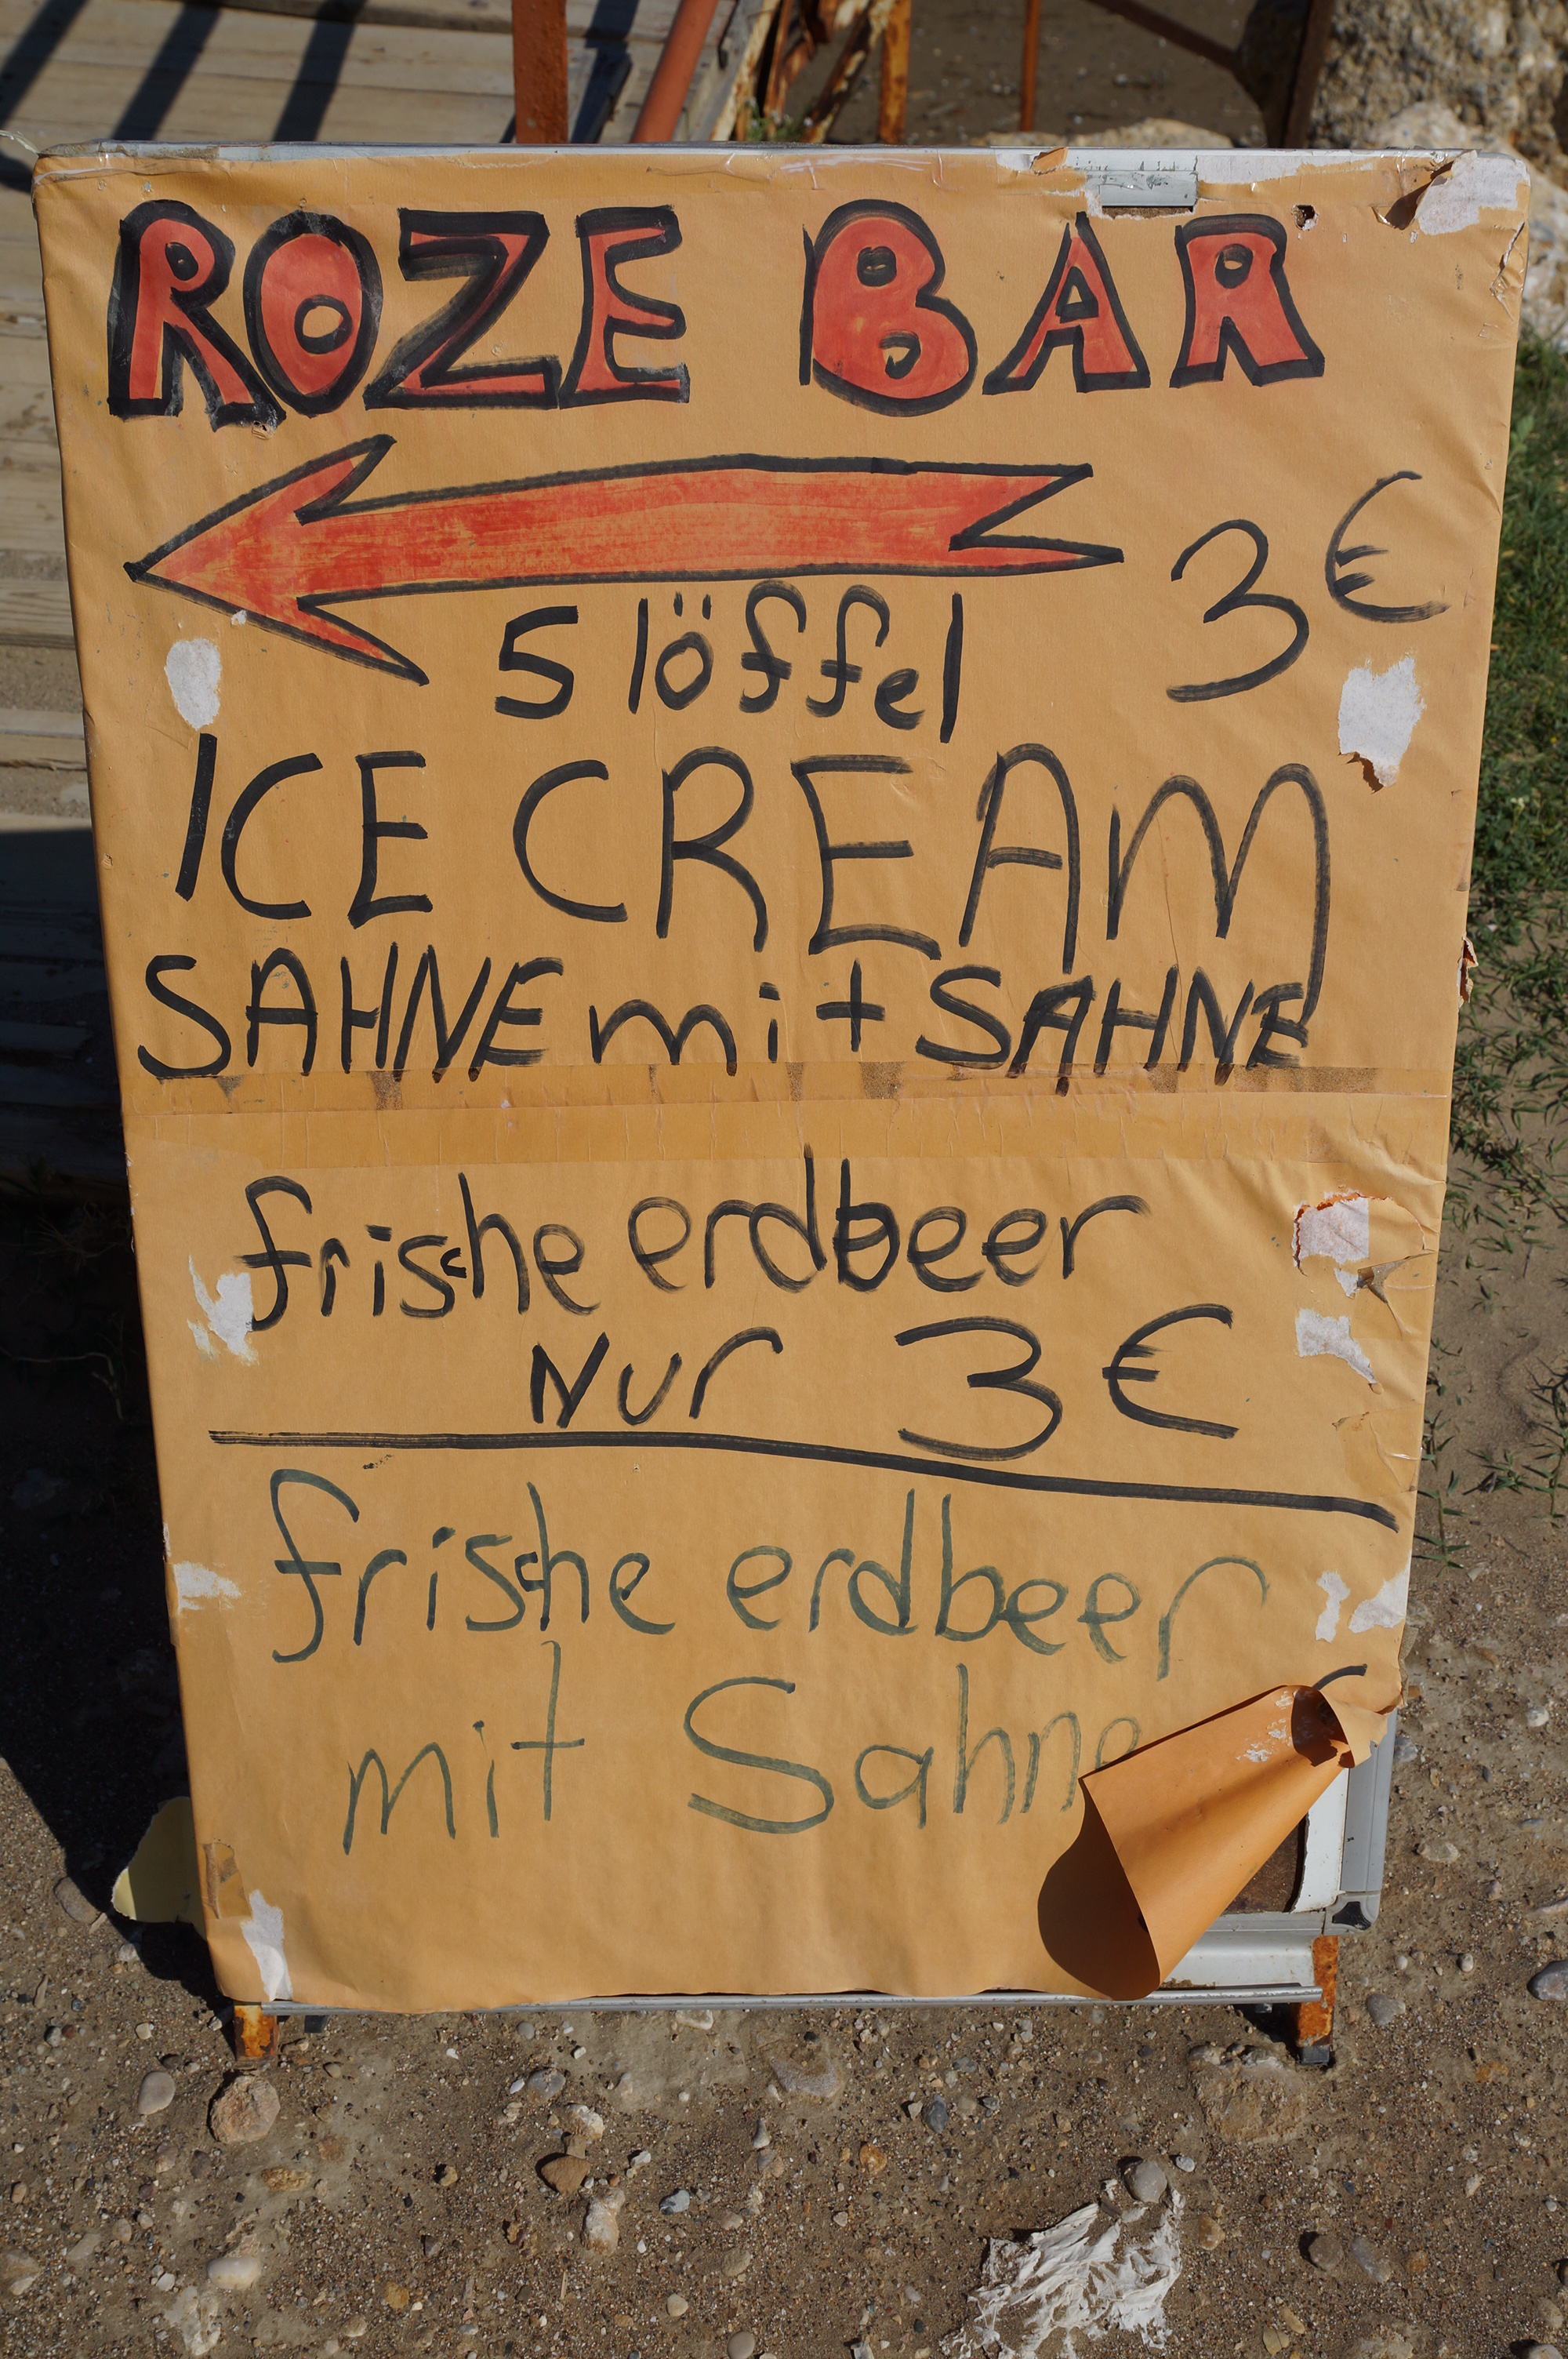 ROZE BAR
3€
5 löffel
ICE CREAM
SAHNE mit SAHNE
frische erdbeer
NUr 3€
frische erdbeer
mit Sahne